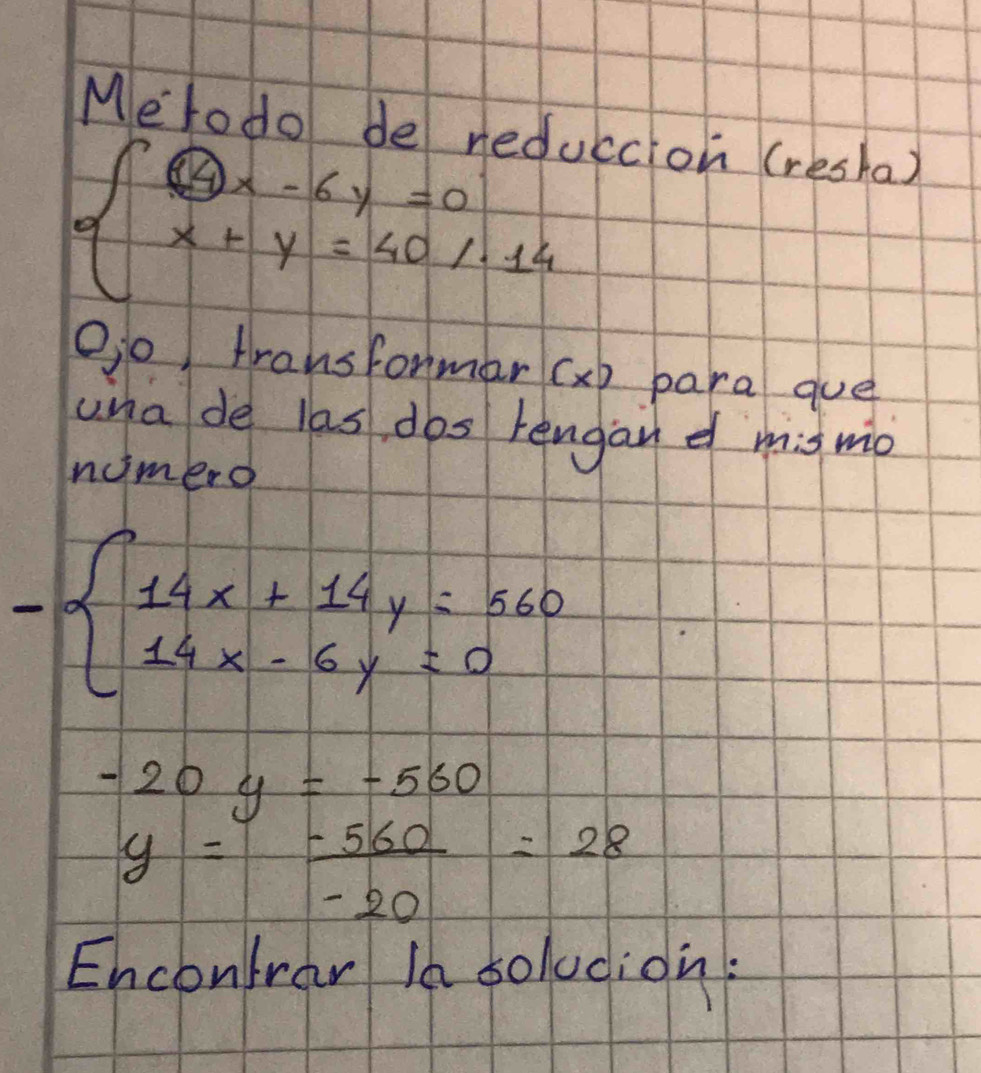 Método de reducción (resta)
14x - 6y = 0
x + y = 40 /. 14
Ojo, transformar (x) para que
una de las dos tengan el mismo
número
- 14x + 14y = 560
14x - 6y = 0
-20y = -560
y = -560 = 28
-20
Encontrar la solución: